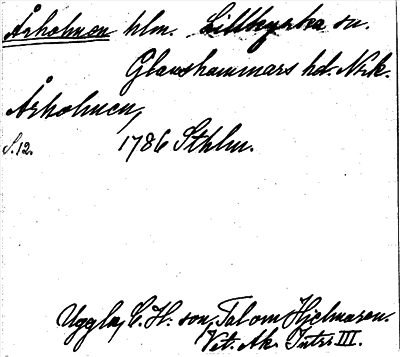 Årholmen hlm. Lillkyrka sn.
Glanshammars hd. Nrk.
Årholmen,
S. 12. 1786 Sthlm.
Uggla, C. H:son, Tal om Hjelmaren.
Vit. Ak. Intr. III.